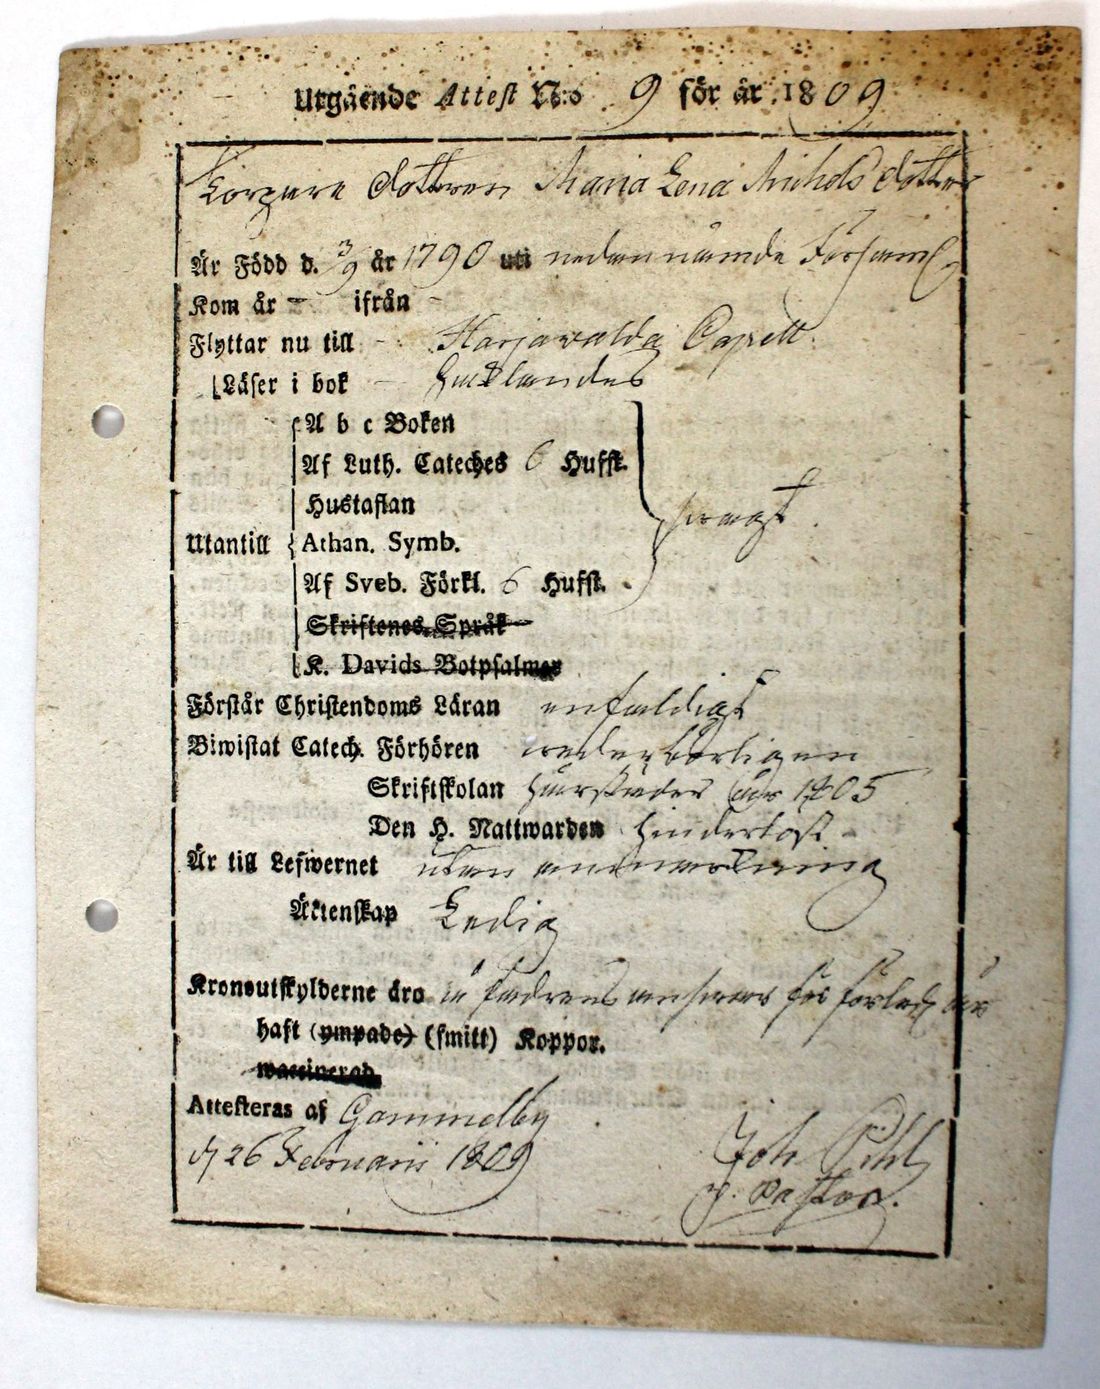 Utgående Attest N:o 9 för år 1809
dottren Maria Lena Michels dotter
Är Född d. 3/9 år 1790 uti nedannämde Församl.
Kom år - ifrån -
Flyttar nu till - Harjavalda Capell.
Läser i bok -
A b c Boken
Af Luth. Cateches 6 Hufst.
Hustaflan
Utantill Athan. Symb.
Af Sveb. Förkl. 6 Hufst.
Skriftenes Språk
K. Davids Botpsalmer
Förstår Christendoms Läran enfaldigt
Biwistat Catech. Förhören wederbörligen
Skriftskolan 1805
Den H. Nattwarden hinderlöst
Är till Lefwernet utan anmärkning
Äktenskap Ledig
Kronoutskylderne äro i fadrens answar för förled. år
haft (ympade) (smitt) Koppor.
waccinerad
Attesteras af Gammelby
d. 26 Februarii 1809
Joh. Pihl
Pastor.